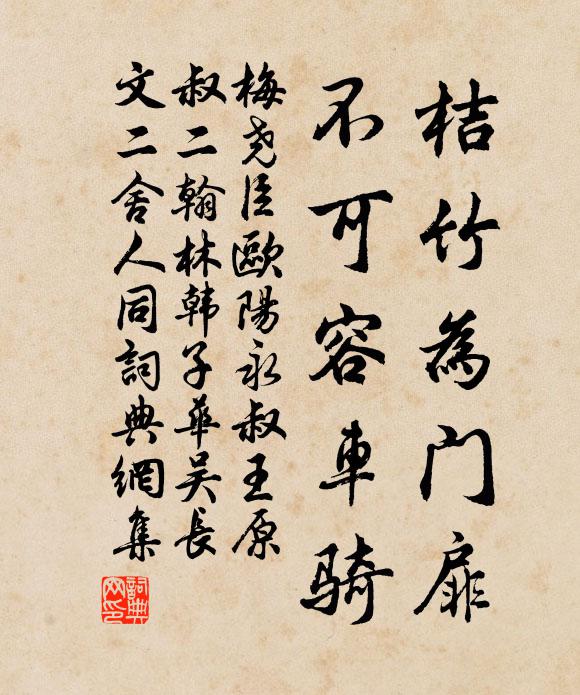 桔竹為门扉
不可容車骑
梅尧臣歐陽永叔王原
叔二翰林韩子華吴長
文二舍人同詞典網集
詞典网印